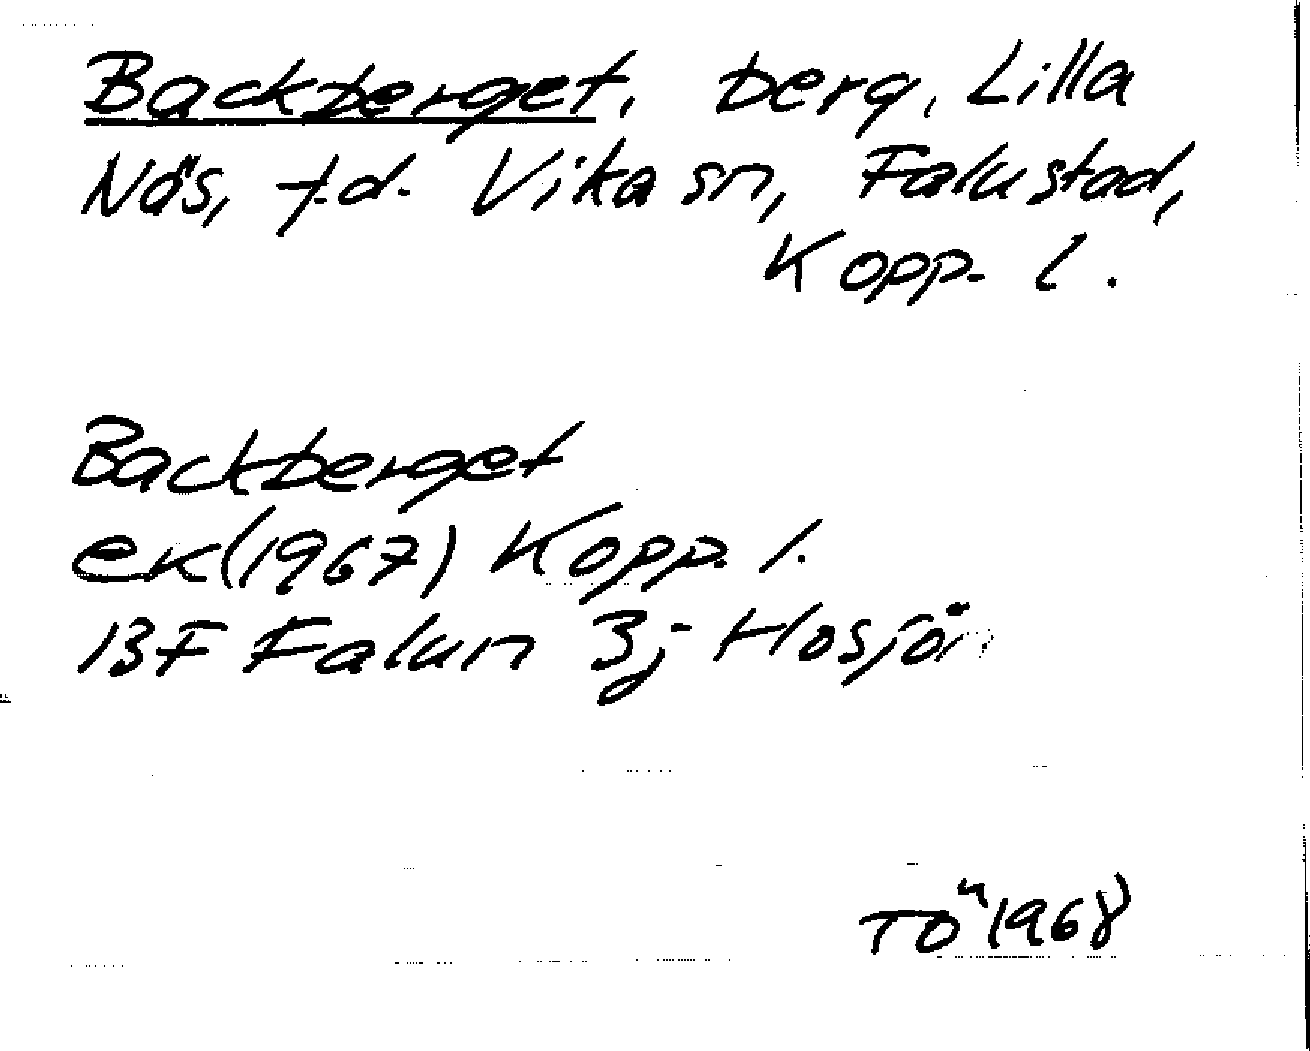 Backberget, berg, Lilla
Näs, f.d. Vika sn, Falu stad,
Kopp. l.
Backberget
ek (1967) Kopp. l.
13F Falun 3j Hosjön
TÖ 1968